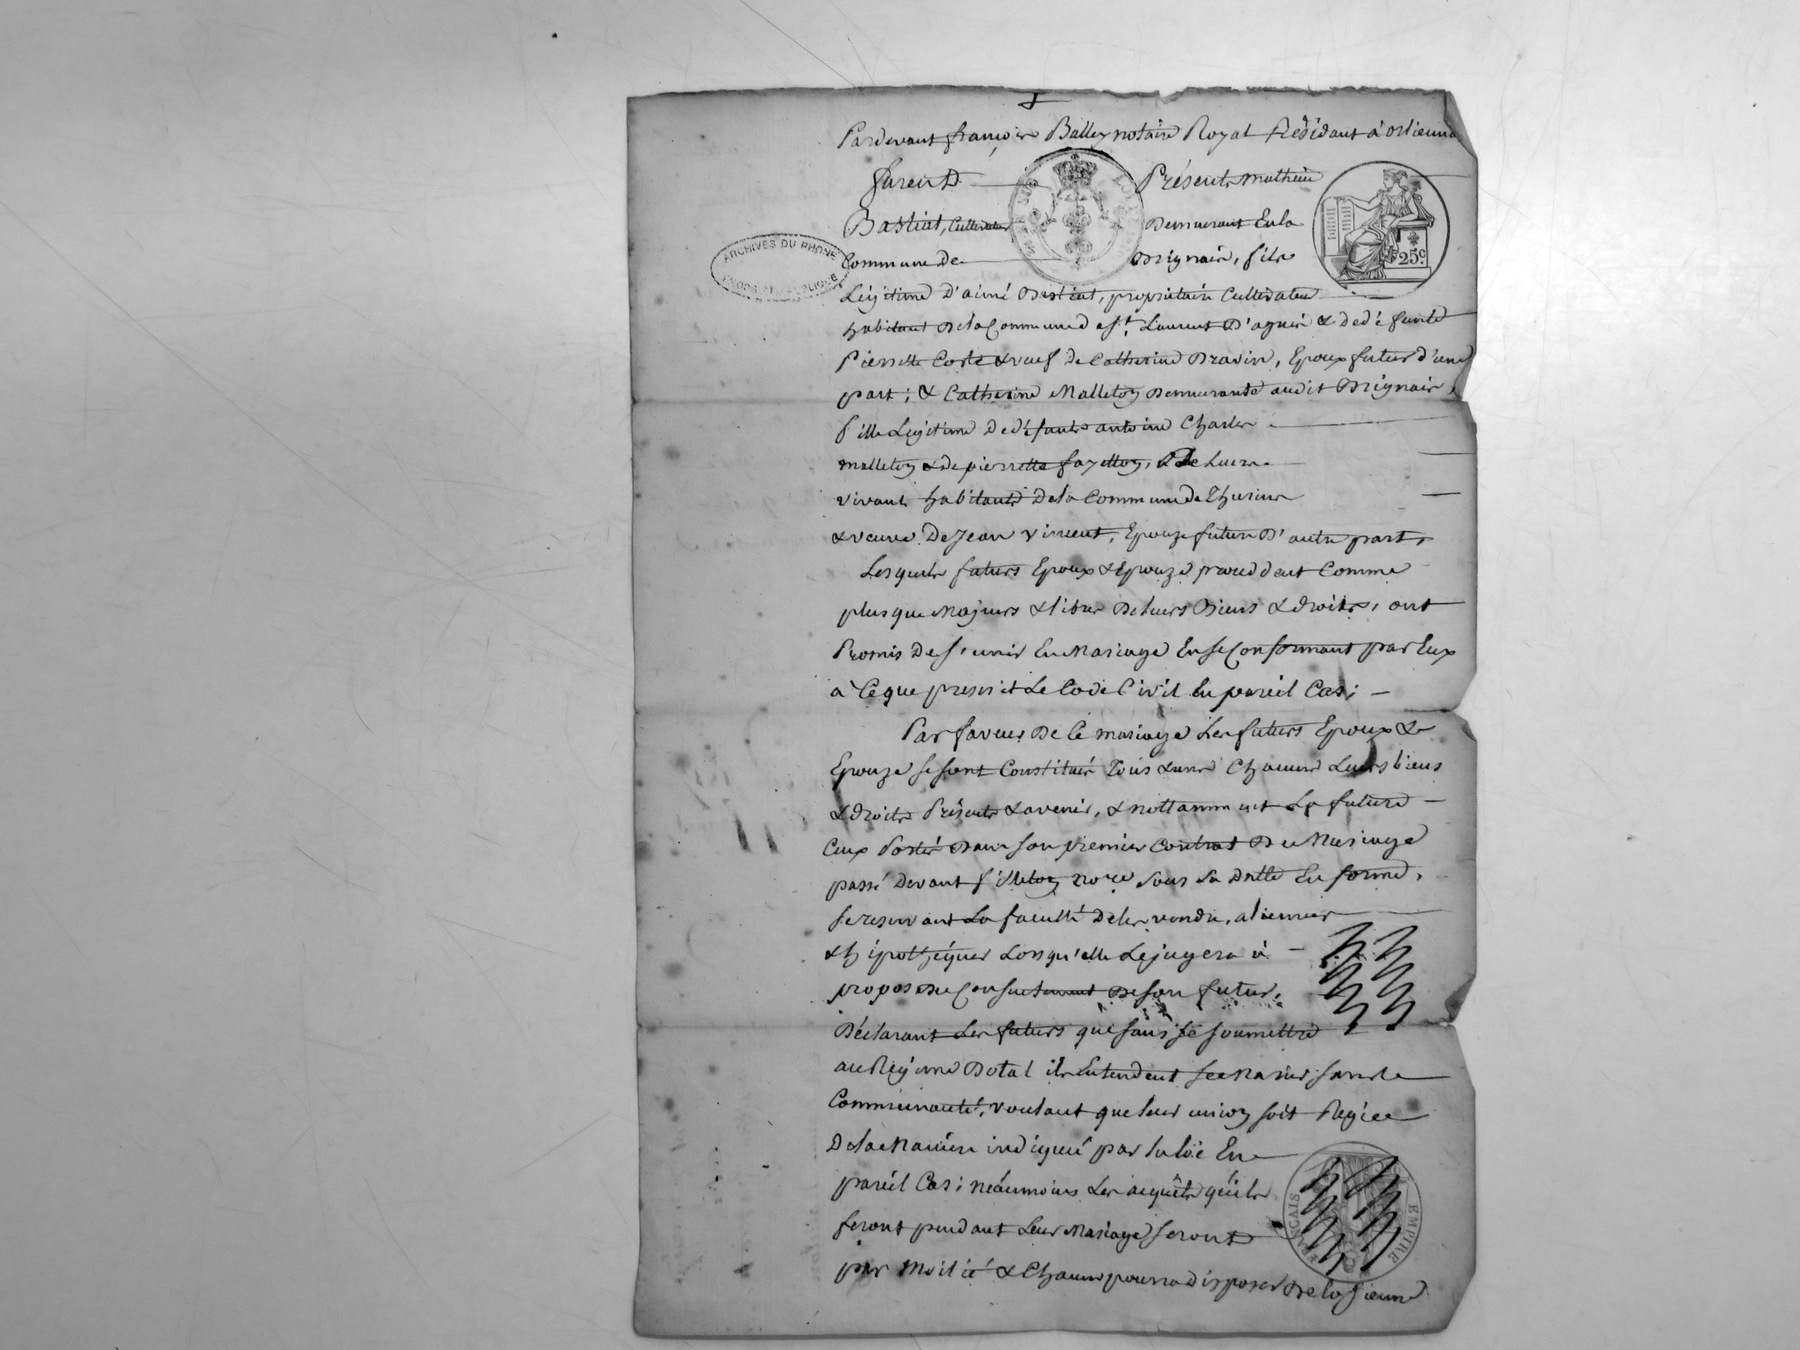 Pardevant françois Balley notaire Royal Résidant à orlienna
furent Présents mathieu
Bastiat, Cultivateur Demeurant En la
Commune De Brignais, fils
Légitime d'aimé Bastiat, propriétaire Cultivateur
habitant De la Commune de St. Laurent D'agnis & de défunte
Pierrette Coste & veuf de Catherine Bravin, Epoux futur d'une
part; & Catherine Malleton Demeurante audit Brignais,
fille Légitime De défunts antoine Charles
malleton & de pierrette fayolloy, De Leurs
vivants habitants De la Commune de Thurins
& veuve De Jean Vincent, Epouze future D'autre part,
Lesquels futurs Epoux & Epouze procèddent Comme
plus que Majeurs & libres De leurs Biens & droits, ont
Promis De s'unir En Mariage En se Conformant par Eux
à Ce que prescrit Le Code Civil En pareil Cas;
Par faveur De Ce mariage Les futurs Epoux &
Epouze se sont Constitués Tous & uns Chacuns Leurs biens
& droits Présents & avenir, & nottamment La future
Ceux Portés Dans son premier Contrat De Mariage
passé Devant filleton nore sous sa Datte En forme,
se reservant La faculté De les vendre, aliénner
& hÿpothéquer Lorsqu'elle Le jugera à
propos Du Consentement De son futur,
Déclarant Les futurs que sans se soumettre
au Régime Dotal ils Entendent se Marier sans
Communauté, voulant que leur union soit Régiee
De la Manière indiquée par la loi En
pareil Cas; néaumoins Les acquêts qu'ils
feront pendant Leur Mariage seront
par Moitié & Chacun pourra disposer De la sienne
ARCHIVES DU RHONE
25c
EMPIRE
FRANÇAIS